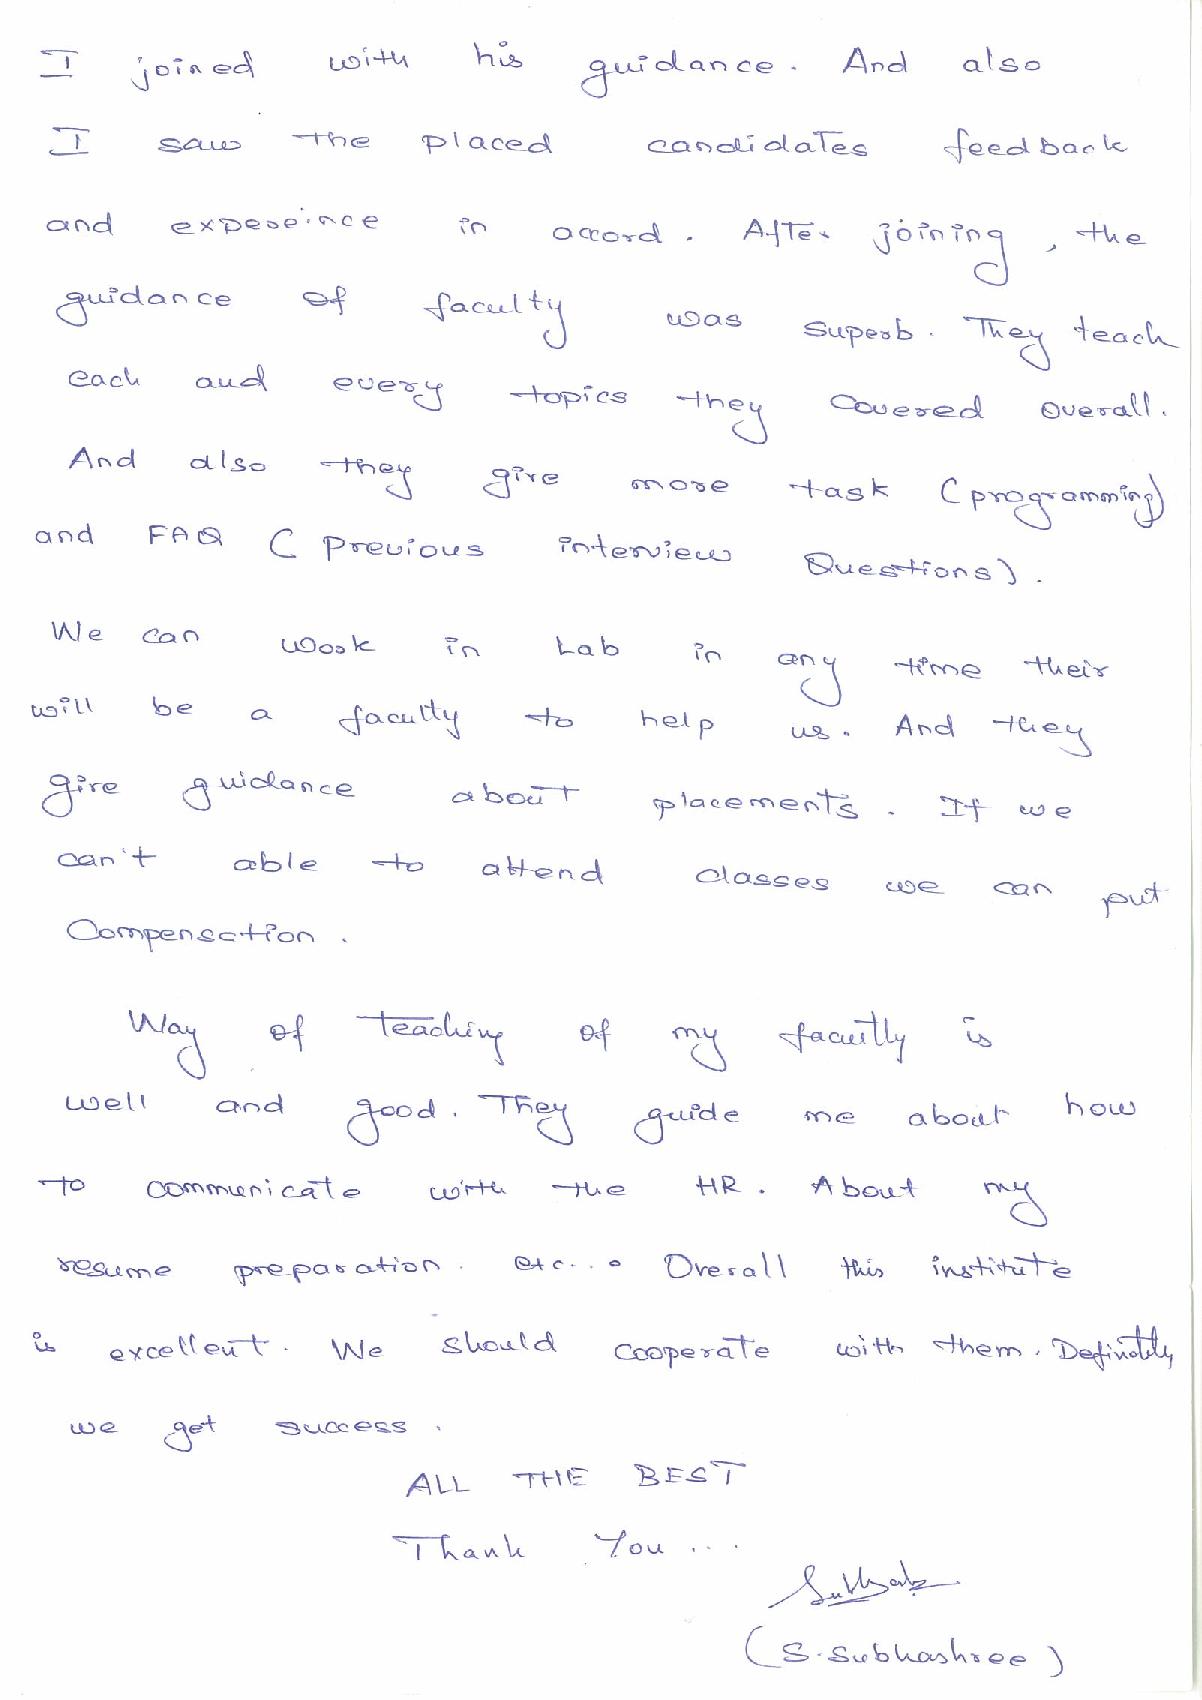 I joined with his guidance. And also
I saw the placed candidates feedback
and expereince in accord. After joining, the
guidance of faculty was superb. They teach
each and every topics they covered overall.
And also they give more task (programming)
and FAQ (Previous interview Questions).
We can work in Lab in any time their
will be a faculty to help us. And they
give guidance about placements. If we
can't able to attend classes we can put
Compensation.
Way of teaching of my facultly is
well and good. They guide me about how
to communicate with the HR. About my
resume preparation. etc... Overall this institute
is excellent. We should cooperate with them. Definatly
we get success.
ALL THE BEST
Thank You...
(S. Subhashree)